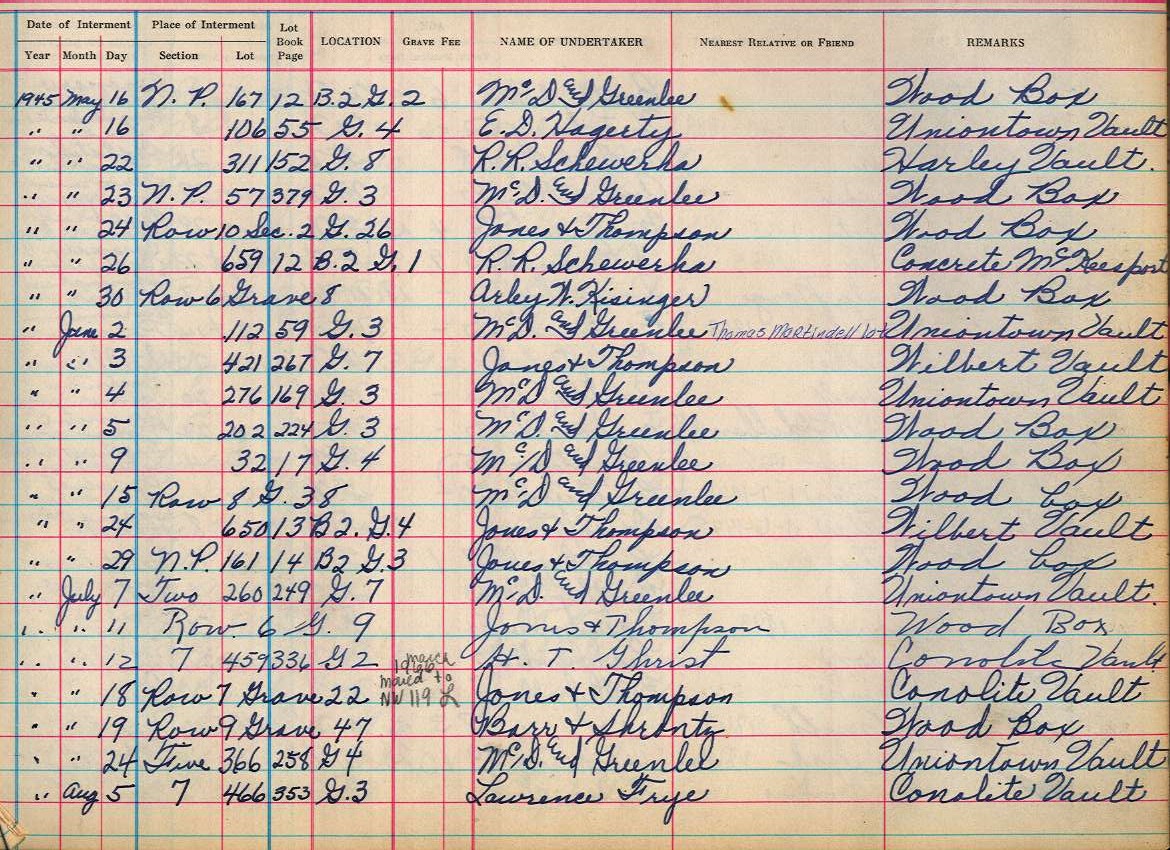 Date of Interment Place of Interment Lot Book Page LOCATION GRAVE FEE NAME OF UNDERTAKER NEAREST RELATIVE OR FRIEND REMARKS
Year Month Day Section Lot
1945 May 16 N. P. 167 12 B.2 G. 2 McD and Greenlee Wood Box
" " 16 106 55 G. 4 E. D. Hagerty Uniontown Vault
" " 22 311 152 G. 8 R. R. Schewerha Harley Vault.
" " 23 N. P. 57 379 G. 3 McD. and Greenlee Wood Box
" " 24 Row 10 Sec. 2 G. 26 Jones & Thompson Wood Box
" " 26 659 12 B.2 G. 1 R. R. Schewerha Concrete McKeesport
" " 30 Row 6 Grave 8 Arley W. Kisinger Wood Box
" June 2 112 59 G. 3 McD. and Greenlee Thomas Martindell lot Uniontown Vault
" " 3 421 267 G. 7 Jones & Thompson Wilbert Vault
" " 4 276 169 G. 3 McD and Greenlee Uniontown Vault
" " 5 202 224 G. 3 McD. and Greenlee Wood Box
" " 9 32 17 G. 4 Mc/D and Greenlee Wood Box
" " 15 Row 8 G. 38 McD and Greenlee Wood box
" " 24 650 13 B2. G.4 Jones & Thompson Wilbert Vault
" " 29 N.P. 161 14 B2 G.3 Jones & Thompson Wood box
" July 7 Two 260 249 G. 7 McD. and Greenlee Uniontown Vault.
" " 11 Row 6 G. 9 Jones & Thompson Wood Box
" " 12 7 459 336 G 2 march 1966 moved to NW 119 L H. T. Ghrist Conolite Vault
" " 18 Row 7 Grave 22 Jones & Thompson Conolite Vault
" " 19 Row 9 Grave 47 Barr & Shrontz Wood Box
" " 24 Five 366 258 G 4 McD. and Greenlee Uniontown Vault
" Aug 5 7 466 353 G.3 Lawrence Frye Conolite Vault